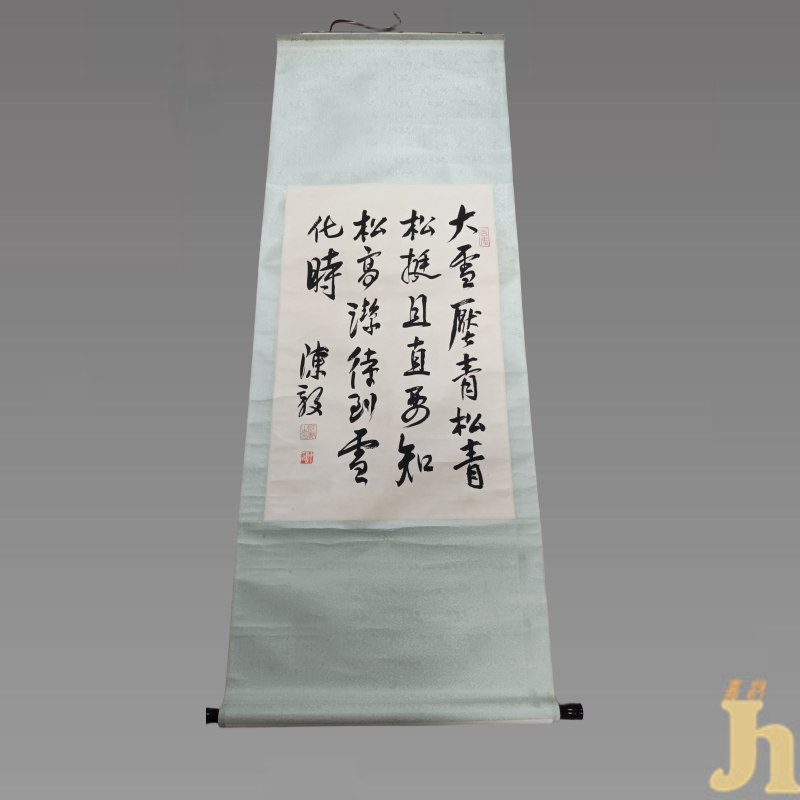 大雪壓青松青
松挺且直要知
松高潔待到雪
化時
陳毅
jh